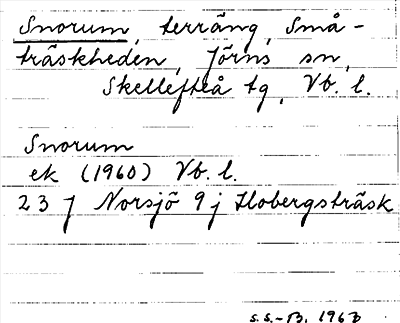 Snorum, terräng, Små-
träskheden, Jörns sn,
Skellefteå tg, Vb. l.
Snorum
ek (1960) Vb. l.
23 J Norsjö 9 j Hobergsträsk
S.S.-B. 1963